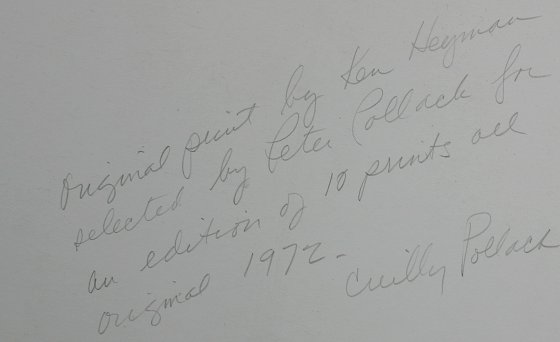 Original print by Ken Heyman
selected by Peter Pollack for
an edition of 10 prints all
original 1972.
Pollack